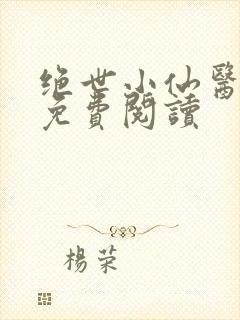 绝世小仙醫
免費閱讀
楊荣